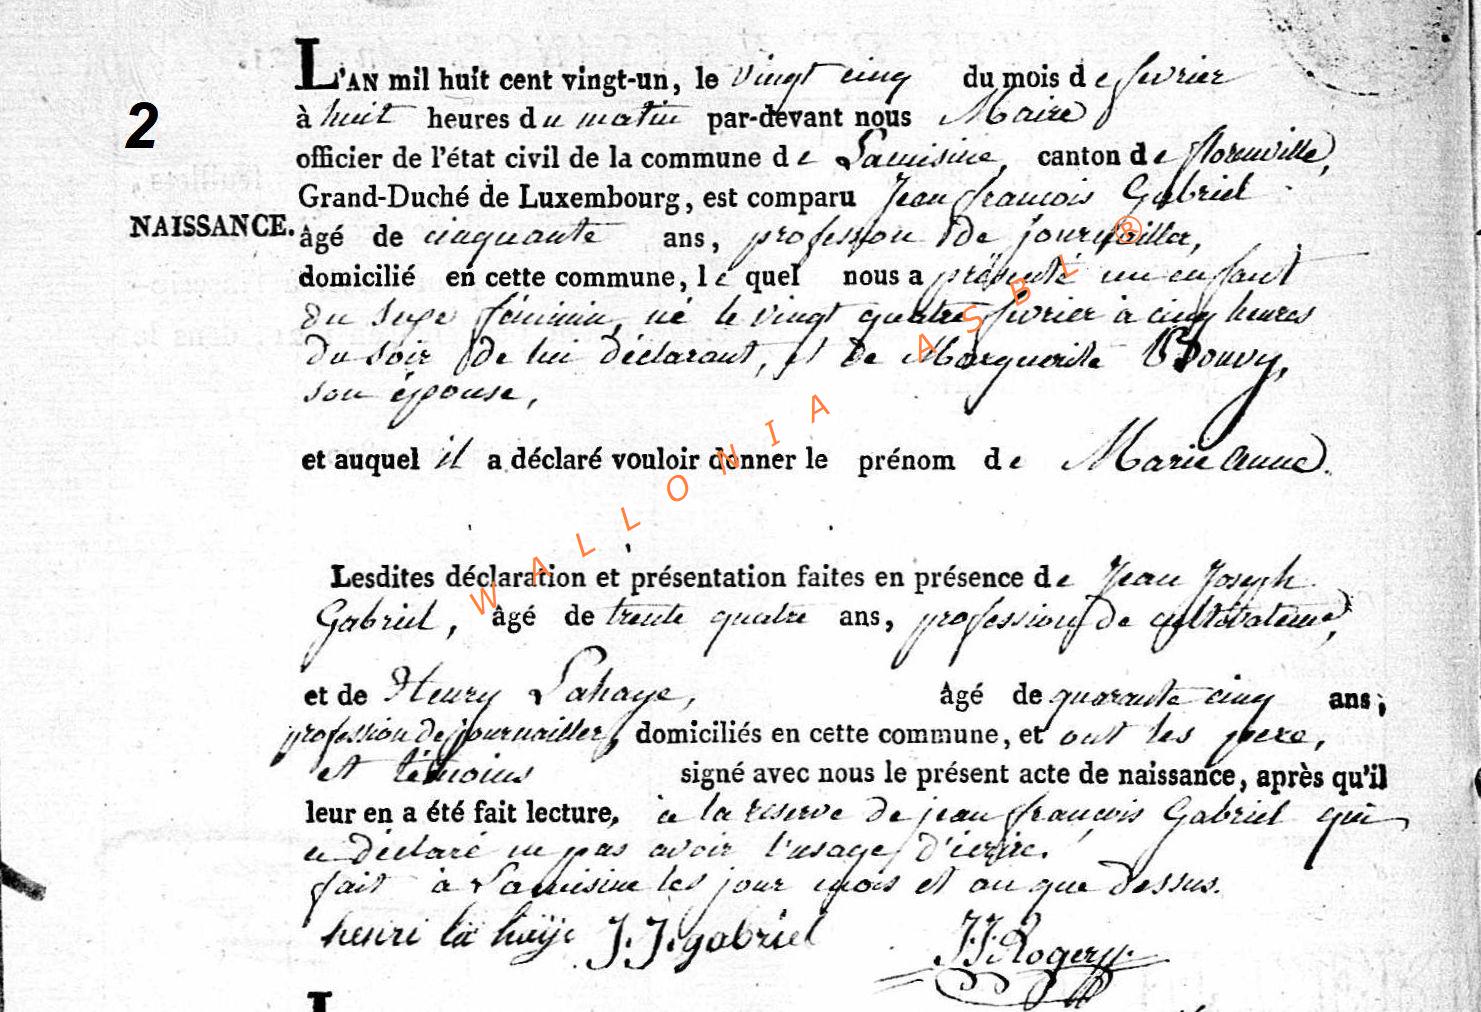 2
NAISSANCE.
L'AN mil huit cent vingt-un, le vingt cinq du mois de fevrier
à huit heures du matin par-devant nous Maire
officier de l'état civil de la commune de Lacuisine, canton de florenville,
Grand-Duché de Luxembourg, est comparu Jean françois Gabriel
âgé de cinquante ans, profession de journailler,
domicilié en cette commune, lequel nous a présenté un enfant
du sexe féminin, né le vingt quatre fevrier à cinq heures
du soir de lui déclarant, et de Marguerite Bouvy,
son épouse,
et auquel il a déclaré vouloir donner le prénom de Marie anne.
Lesdites déclaration et présentation faites en présence de Jean Joseph
Gabriel, âgé de trente quatre ans, profession de
et de Henry Lahaye, âgé de quarante cinq ans,
profession de journailler, domiciliés en cette commune, et ont les pere,
et témoins signé avec nous le présent acte de naissance, après qu'il
leur en a été fait lecture, à la reserve de jean françois Gabriel qui
a déclaré ne pas avoir l'usage d'écrire.
fait à Lacuisine les jour mois et an que dessus.
henri la haÿe J. J. gabriel J. J. Rogery
L
WALLONIA ASBL ®